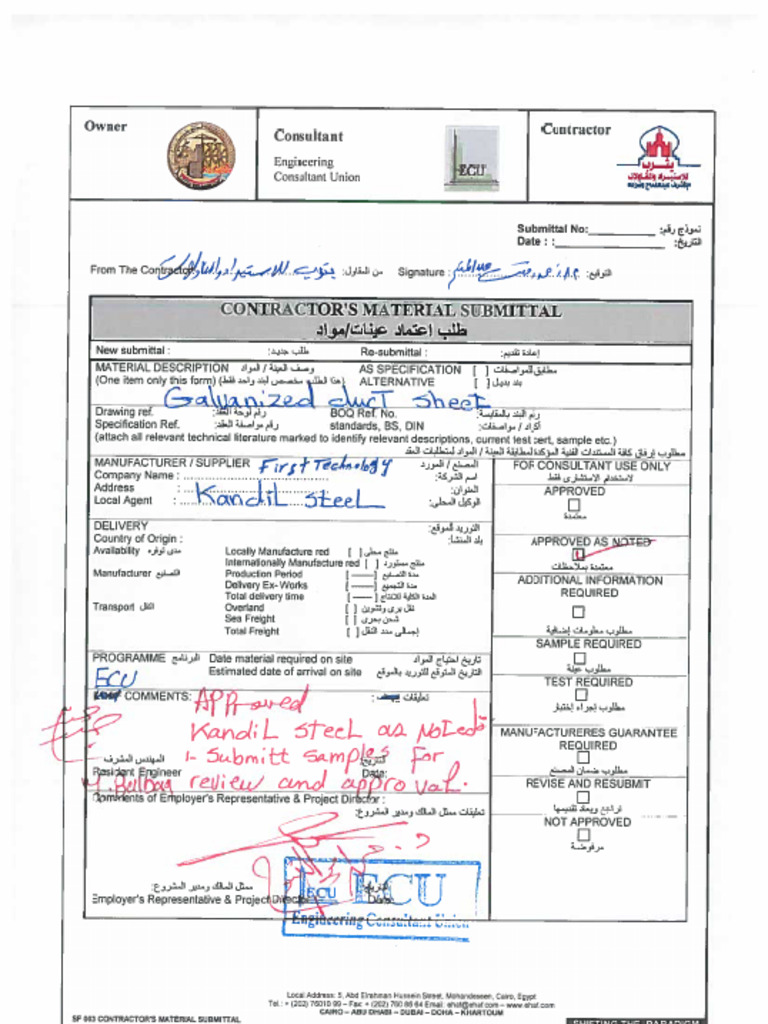 Owner
Consultant
Engineering
Consaltant Union
ECU
Contractor
يثرب
للاستيراد والمقاولات
Submittal No: نموذج رقم:
Date : : التاريخ:
From The Contractor من المقاول: Signature : التوقيع:
CONTRACTOR'S MATERIAL SUBMITTAL
طلب اعتماد عينات/مواد
New submittal : طلب جديد: Re-submittal : إعادة تقديم:
MATERIAL DESCRIPTION وصف العينة / المواد AS SPECIFICATION [ ] مطابق للمواصفات
(One item only this form) (هذا الطلب مخصص لبند واحد فقط) ALTERNATIVE [ ] بند بديل
Galvanized duct sheet
Drawing ref. رقم لوحة العقد: BOQ Ref. No. رقم البند بالمقايسة:
Specification Ref. رقم مواصفة العقد: standards, BS, DIN أكواد / مواصفات:
(attach all relevant technical literature marked to identify relevant descriptions, current test cert, sample etc.)
مطلوب إرفاق كافة المستندات الفنية المؤكدة لمطابقة العينة / المواد لمتطلبات العقد
MANUFACTURER / SUPPLIER First Technology المصنع / المورد
Company Name : اسم الشركة:
Address : العنوان:
Local Agent : Kandil Steel الوكيل المحلي:
DELIVERY التوريد للموقع:
Country of Origin : بلد المنشأ:
Availability مدى توفره Locally Manufacture red [ ] منتج محلى
Internationally Manufacture red [ ] منتج مستورد
Manufacturer التصنيع Production Period [ ] مدة التصنيع
Delivery Ex- Works [ ] مدة التجميع
Total delivery time [ ] المدة الكلية للانتاج
Transport النقل Overland [ ] نقل برى
Sea Freight [ ] شحن بحرى
Total Freight [ ] إجمالى مدد النقل
PROGRAMME البرنامج Date material required on site تاريخ احتياج المواد
Estimated date of arrival on site التاريخ المتوقع للتوريد بالموقع
ECU
COMMENTS: تعليقات :
APProved
Kandil Steel as Noted
1- Submitt samples for
review and approval.
المهندس المشرف التاريخ:
Resident Engineer Date:
Comments of Employer's Representative & Project Director :
تعليقات ممثل المالك ومدير المشروع:
ممثل المالك ومدير المشروع: التاريخ:
Employer's Representative & Project Director Date:
ECU ECU
Engineering Consultant Union
FOR CONSULTANT USE ONLY
لاستخدام الاستشارى فقط
APPROVED
معتمدة
APPROVED AS NOTED
معتمدة بملاحظات
ADDITIONAL INFORMATION
REQUIRED
مطلوب معلومات إضافية
SAMPLE REQUIRED
مطلوب عينة
TEST REQUIRED
مطلوب إجراء إختبار
MANUFACTURERES GUARANTEE
REQUIRED
مطلوب ضمان المصنع
REVISE AND RESUBMIT
تراجع ويعاد تقديمها
NOT APPROVED
مرفوضة
Local Address: 5, Abd Elrahman Hussein Street, Mohandeseen, Cairo, Egypt
CAIRO – ABU DHABI – DUBAI – DOHA – KHARTOUM
SF 003 CONTRACTOR'S MATERIAL SUBMITTAL
SHIFTING THE PARADIGM